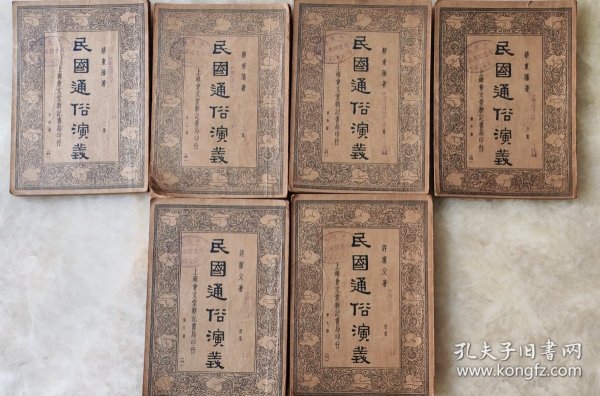 蔡東藩著
民國通俗演義
上海會文堂新記書局印行
蔡東藩著
民國通俗演義
上海會文堂新記書局印行
蔡東藩著
民國通俗演義
上海會文堂新記書局印行
蔡東藩著
民國通俗演義
上海會文堂新記書局印行
許廑父著
民國通俗演義
上海會文堂新記書局印行
許廑父著
民國通俗演義
上海會文堂新記書局印行
孔夫子旧书网
www.kongfz.com